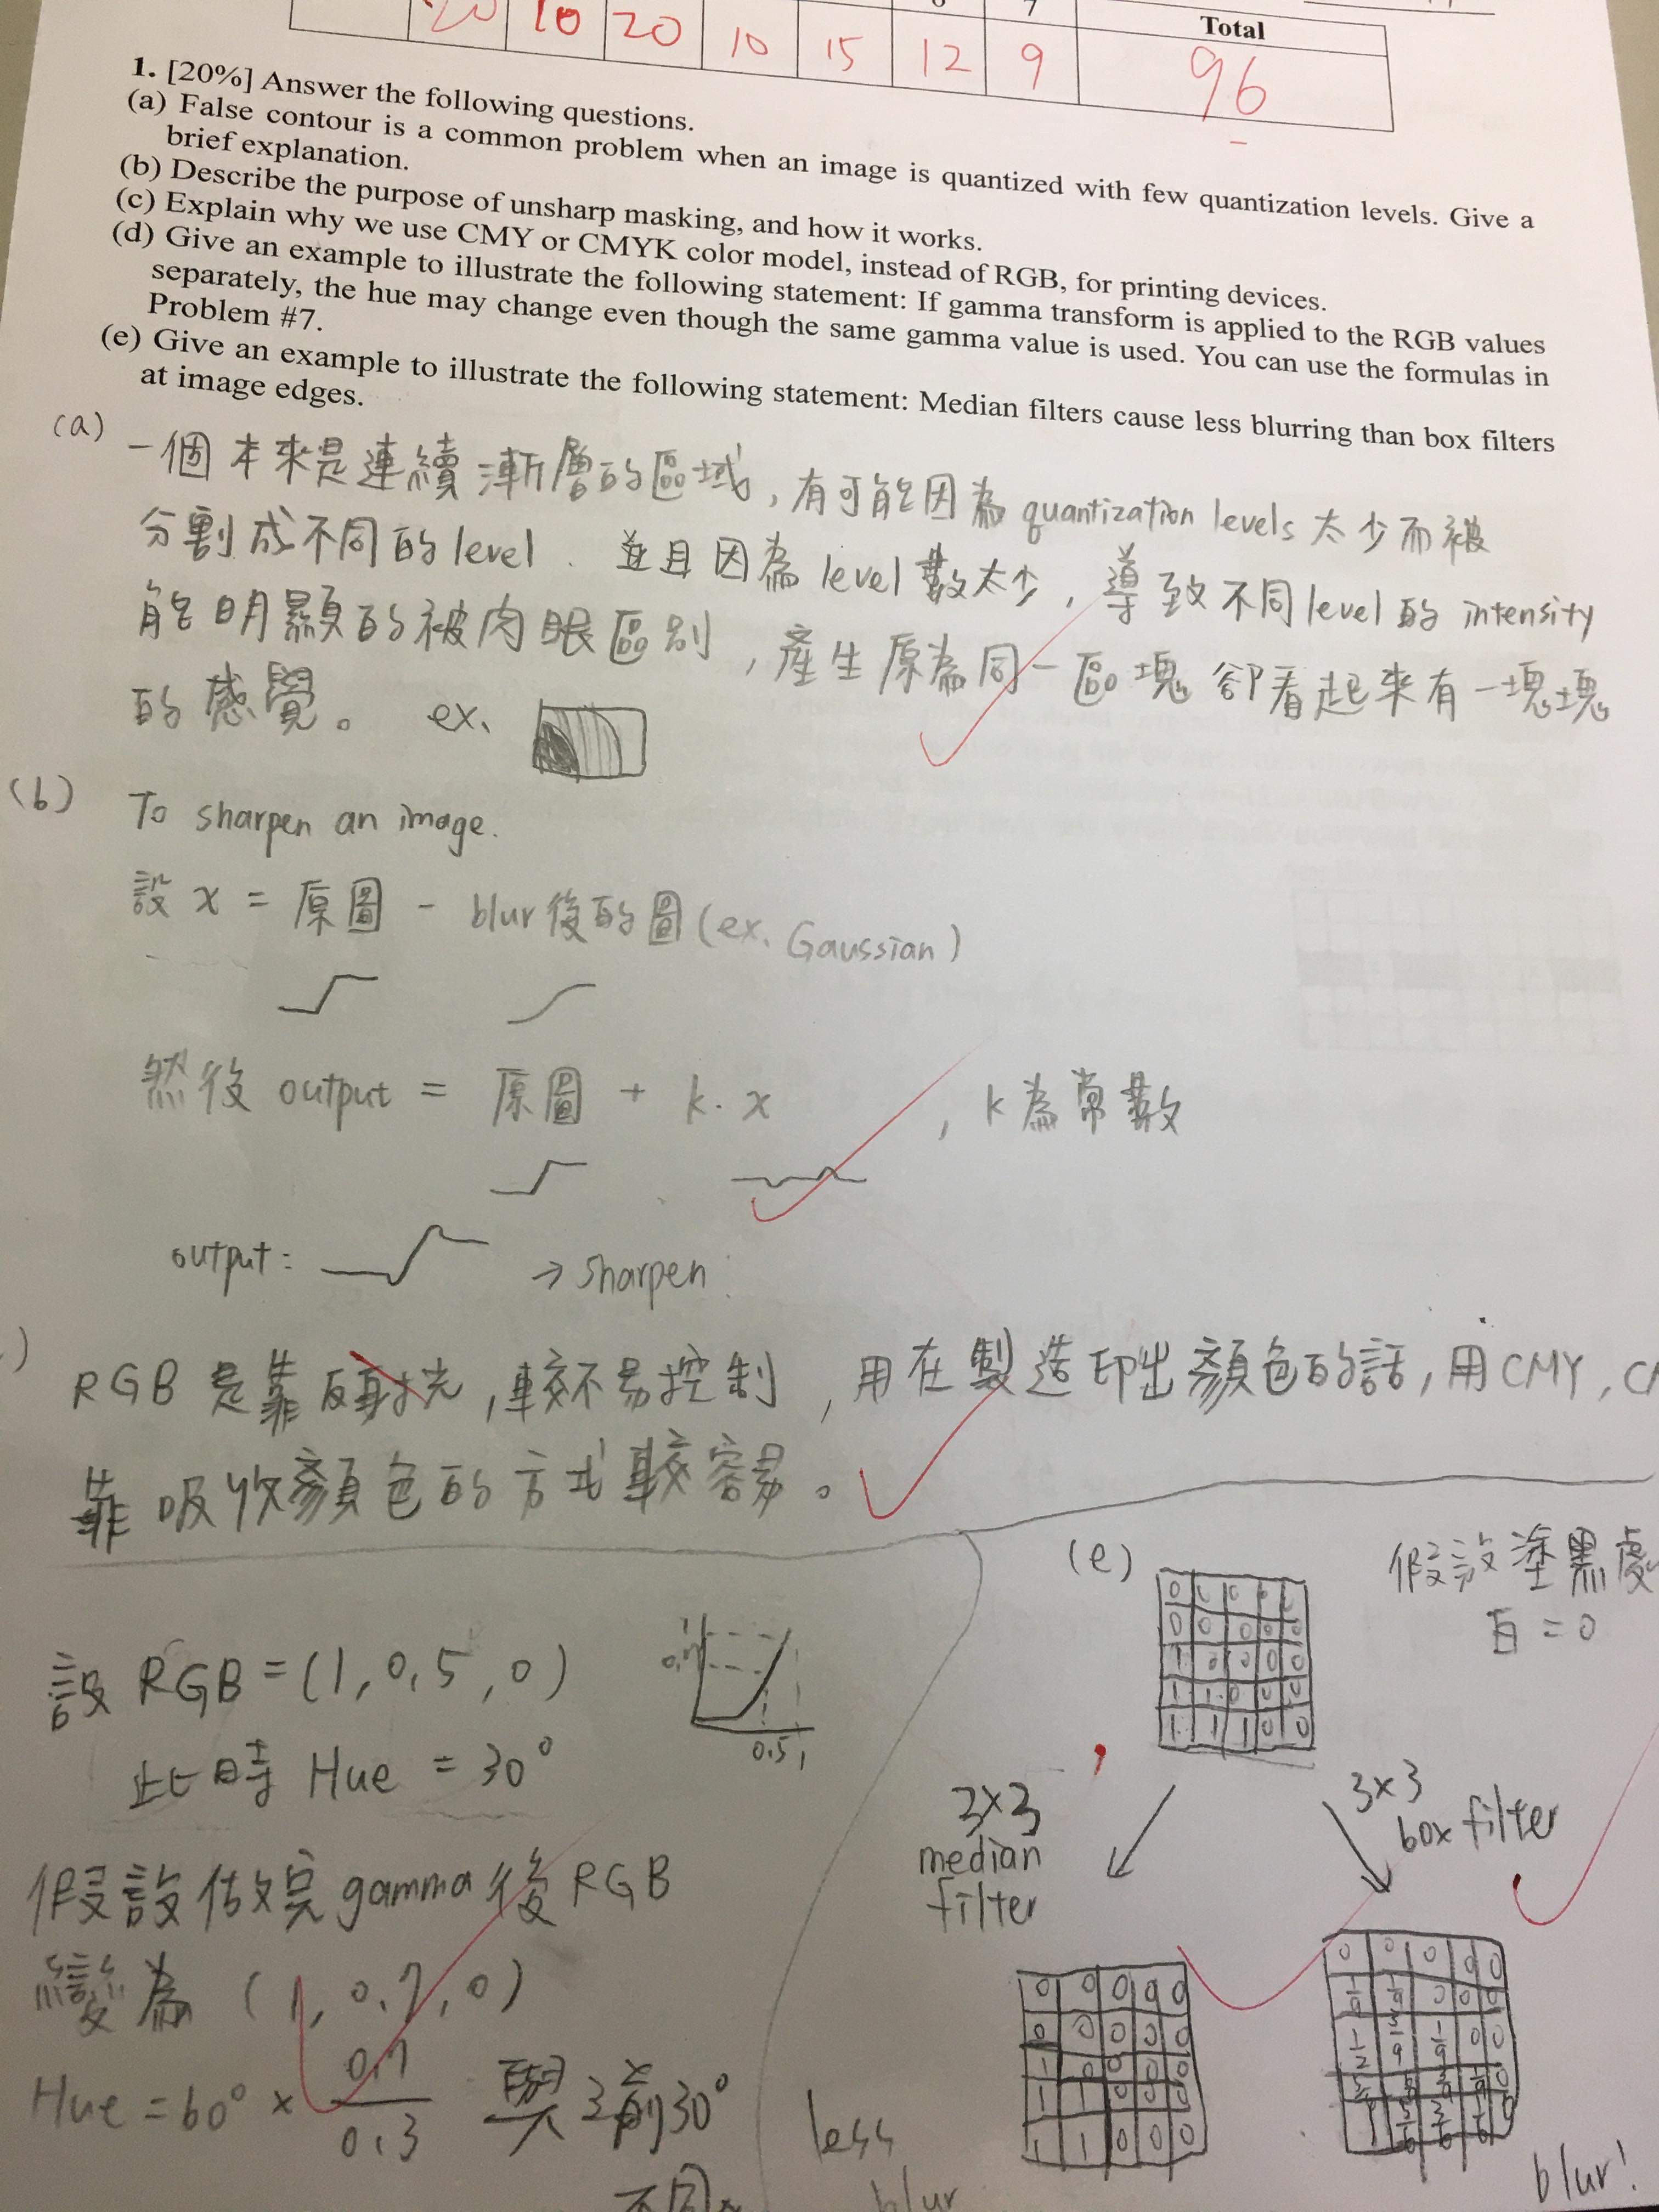 7
Total
20 10 20 10 15 12 9 96
1. [20%] Answer the following questions.
(a) False contour is a common problem when an image is quantized with few quantization levels. Give a
brief explanation.
(b) Describe the purpose of unsharp masking, and how it works.
(c) Explain why we use CMY or CMYK color model, instead of RGB, for printing devices.
(d) Give an example to illustrate the following statement: If gamma transform is applied to the RGB values
separately, the hue may change even though the same gamma value is used. You can use the formulas in
Problem #7.
(e) Give an example to illustrate the following statement: Median filters cause less blurring than box filters
at image edges.
(a) 一個本來是連續漸層的區域,有可能因為 quantization levels 太少而被
分割成不同的level. 並且因為level數太少,導致不同level的 intensity
能明顯的被肉眼區別,產生原為同一區塊卻看起來有一塊塊
的感覺。 ex.
(b) To sharpen an image.
設 x = 原圖 - blur後的圖(ex. Gaussian)
然後 output = 原圖 + k. x , k為常數
output: → sharpen
) RGB是靠反射光,較不易控制,用在製造印出顏色的話,用CMY,
靠吸收顏色的方式較容易。
設 RGB = (1, 0.5, 0)
0.5 1
此時 Hue = 30°
假設做完gamma後RGB
變為 (1, 0.7, 0)
Hue = 60° × 0.7
0.3 與之前30°
不同
(e) 假設塗黑處
= 0
0 0 0 0
1 0 0 0 0
1 1 0 0 0
1 1 1 0 0
3×3
median
filter
3×3
box filter
0 0 0 0 0
0 0 0 0 0
1 0 0 0 0
1 1 0 0 0
1 1 0 0 0
less
blur
0 0 0 0 0
blur!